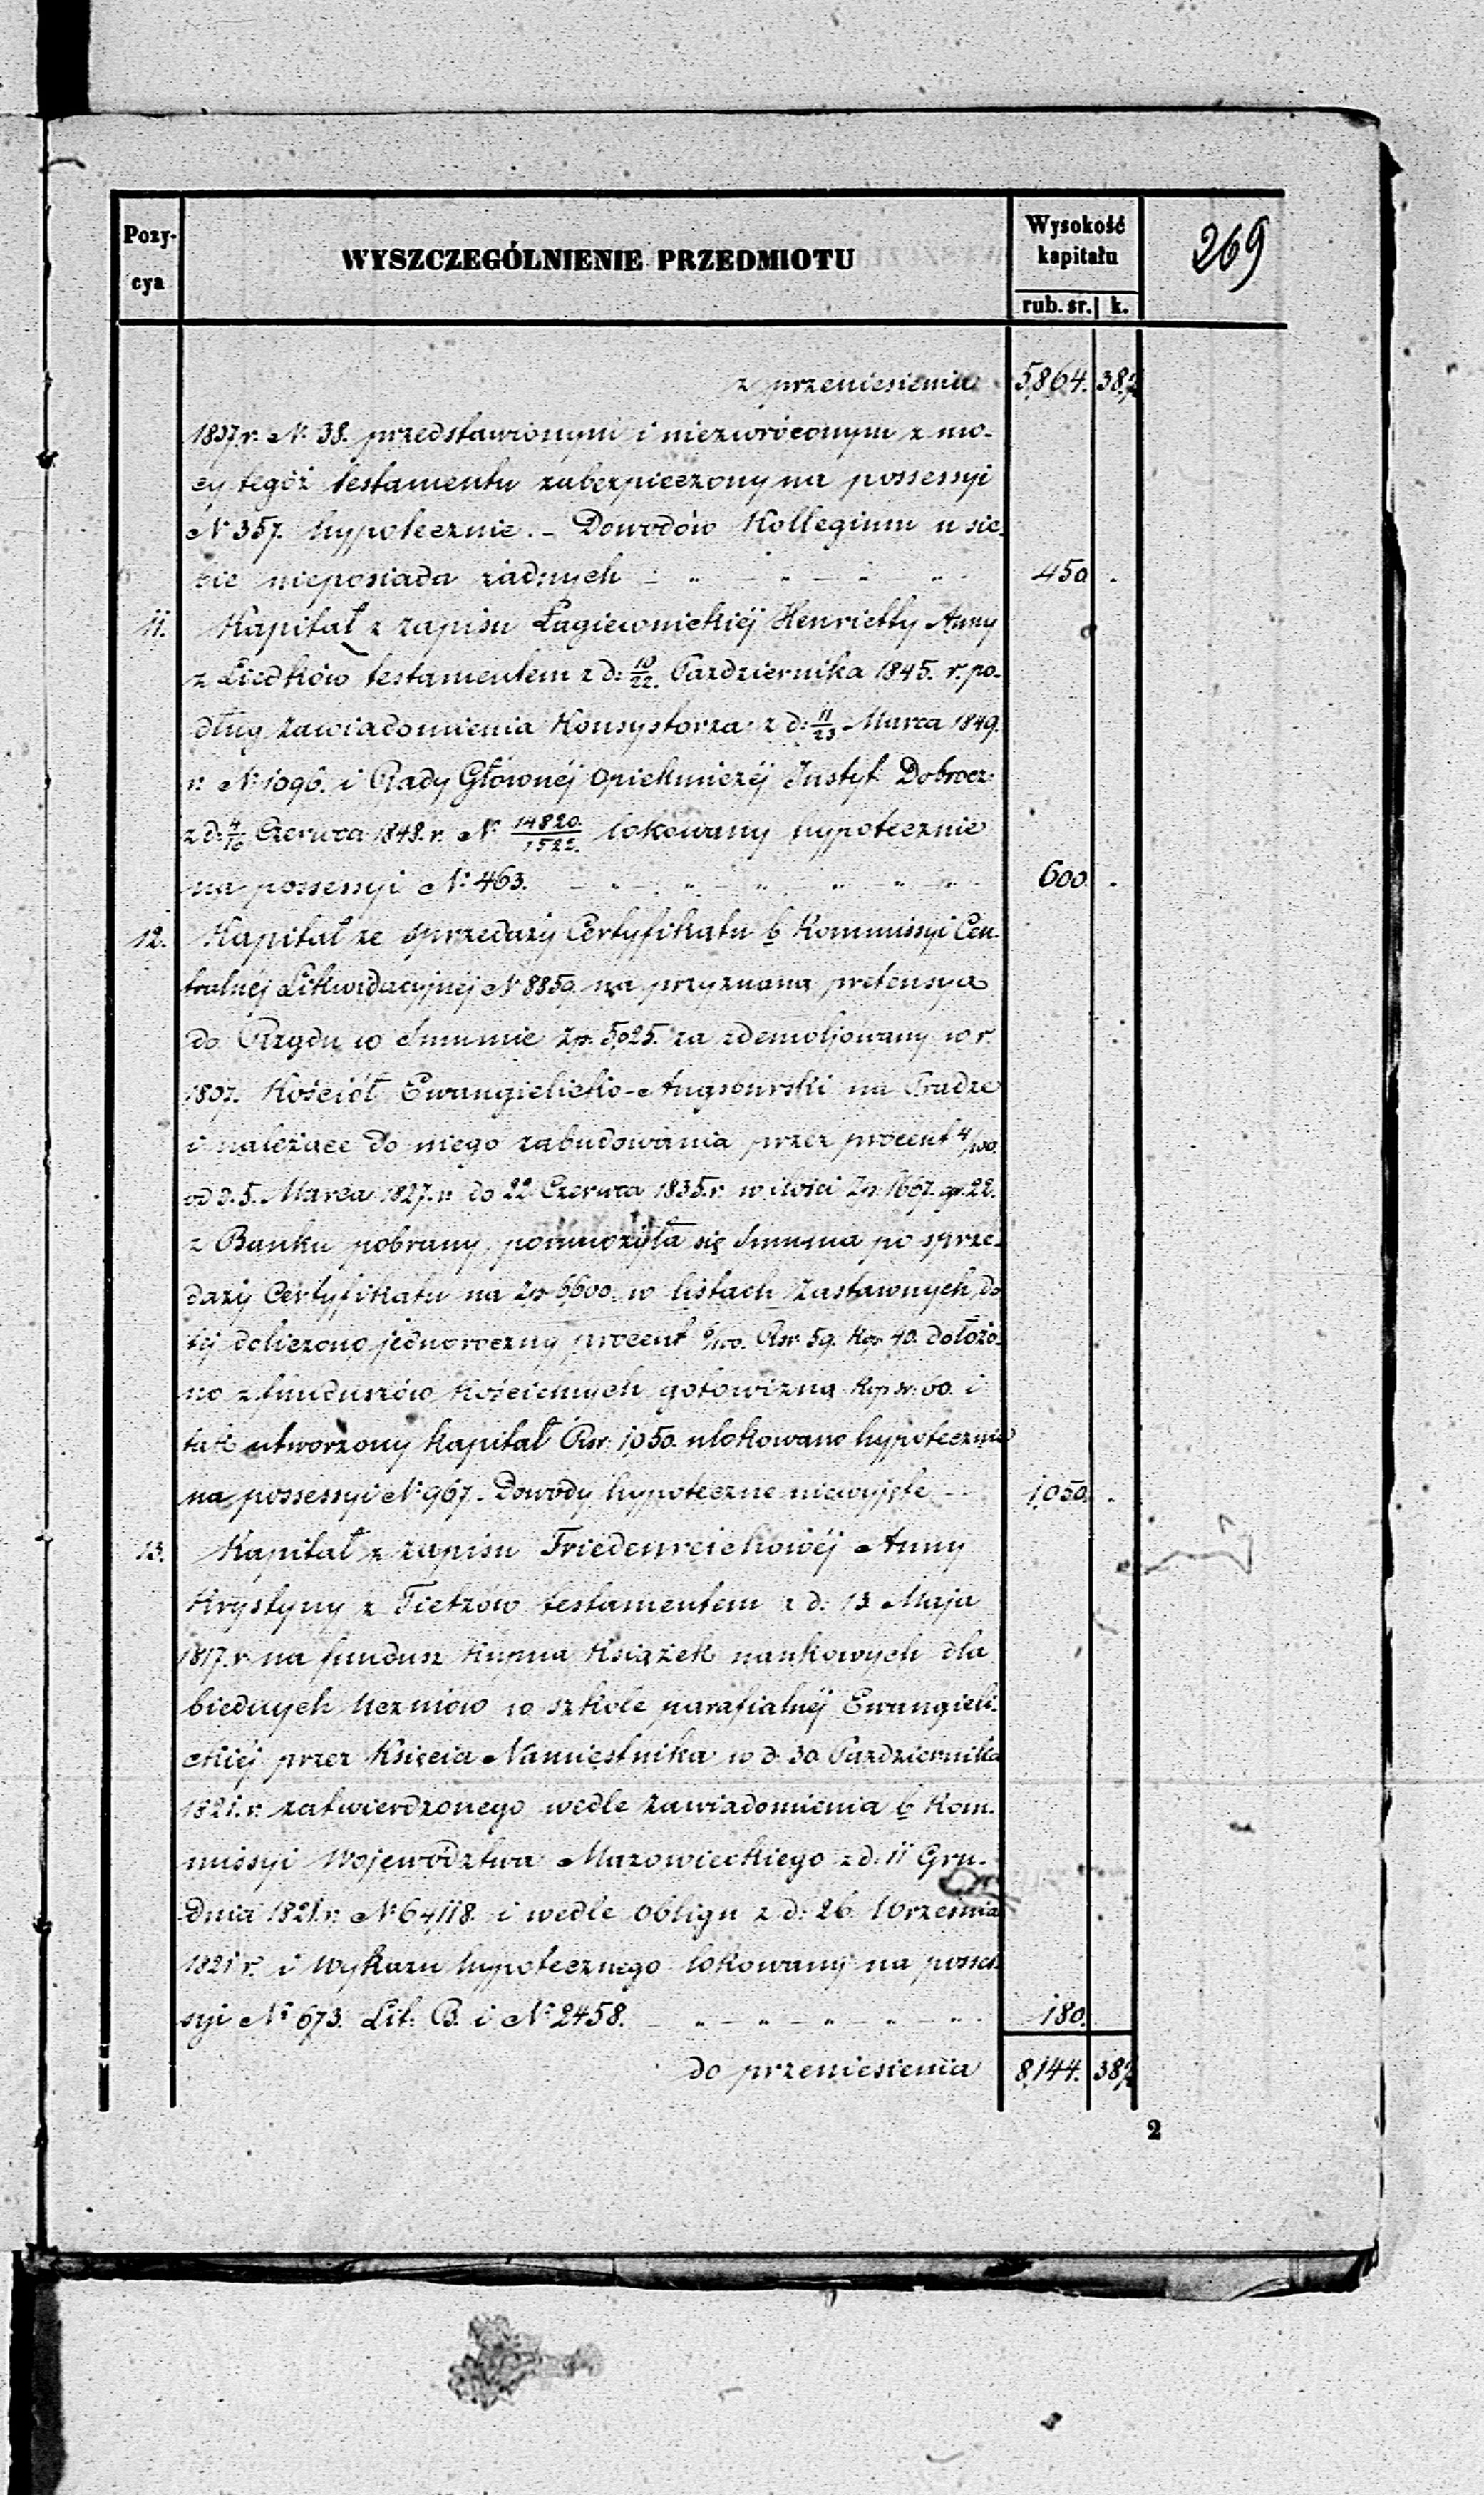 Pozy-
cya
WYSZCZEGÓLNIENIE PRZEDMIOTU
Wysokość
kapitału
rub. sr. k.
269
z przeniesienia 5,864. 38½
1837.r. N: 38. przedstawionym i niezwróconym z mo-
cy tegoż testamentu zabezpieczony na possessyi
N 357. hypotecznie. - Dowodów Kollegium u sie-
bie nieposiada żadnych 450 .
11. Kapitał z zapisu Łagiewnickiéj Henrietty Anny
z Liedków testamentem z d: 10/22. Pazdziernika 1845. r. po-
dług zawiadomienia Konsystorza z d: 11/23 Marca 1849.
r. N: 1096. i Rady Głównéj Opiekuńczéj Instyt. Dobrocz:
z d: 4/16 Czerwca 1848.r. N: 14820./1522. lokowany hypotecznie
na possessyi N: 463. 600. .
12. Kapitał ze sprzedaży Certyfikatu b. Kommissyi Cen-
tralnéj Likwidacyjnéj N 8850. na przyznaną pretensya
do Rządu w Summie Zp. 5,025. za zdemoljowany w r.
1807. Kościół Ewangielicko-Augsburski na Pradze
i należące do niego zabudowania przez procent 4/100.
od d. 5. Marca 1827.r. do 22 Czerwca 1835.r. w ilości Zp. 1667. gr. 22.
z Banku pobrany, pomnożyła się Summa po sprze-
daży Certyfikatu na Zp 6,600. w listach Zastawnych, do
téj doliczono jednoroczny procent 6/100. Rsr. 59. Kop 40. dołożo-
no z funduszów Kościelnych gotowizną Kop sr: 60. i
tak utworzony Kapitał Rsr. 1,050. ulokowano hypotecznie
na possessyi N: 967. - Dowody hypoteczne niewyjęte 1,050. .
13. Kapitał z zapisu Friedenreichowéj Anny
Krystyny z Tietzów testamentem z d: 13 Maja
1817.r. na fundusz Kupna Książek naukowych dla
biednych Uczniów w szkole parafialnéj Ewangieli-
ckiéj przez Księcia Namiestnika w d: 30 Pazdziernika
1821.r. zatwierdzonego wedle zawiadomienia b. Kom-
missyi Województwa Mazowieckiego z d: 11 Gru-
dnia 1821.r. N 64,118. i wedle obligu z d: 26 Września
1821 r. i wykazu hypotecznego lokowany na posses-
syi N: 673. Lit: B. i N: 2458. 180.
do przeniesienia 8,144. 38½
2